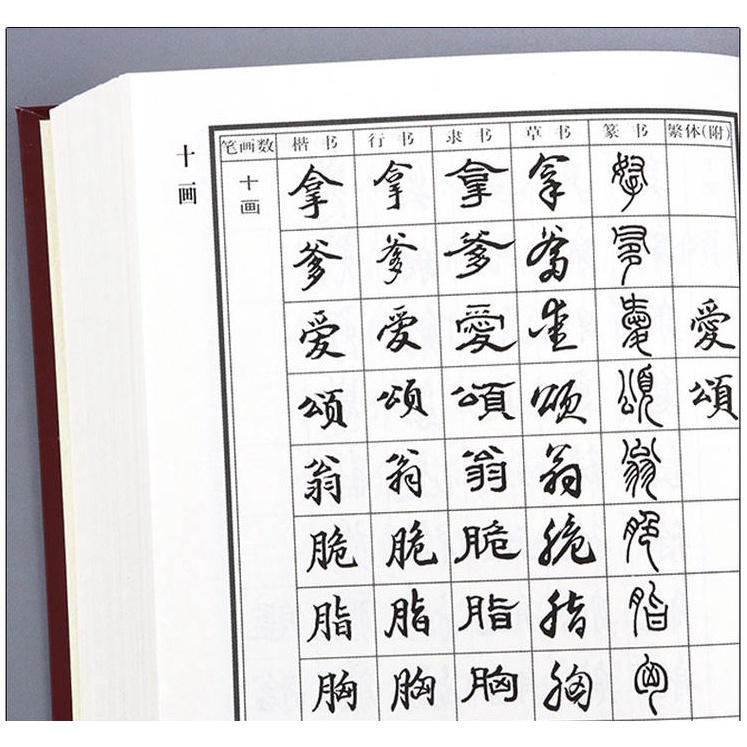 十画
笔画数 楷书 行书 隶书 草书 篆书 繁体(附)
十画 拿 拿 拿 拿 拿
爹 爹 爹 爹 爹
爱 爱 愛 爱 愛 愛
颂 颂 頌 颂 頌 頌
翁 翁 翁 翁 翁
脆 脆 脆 脆 脆
脂 脂 脂 脂 脂
胸 胸 胸 胸 匈